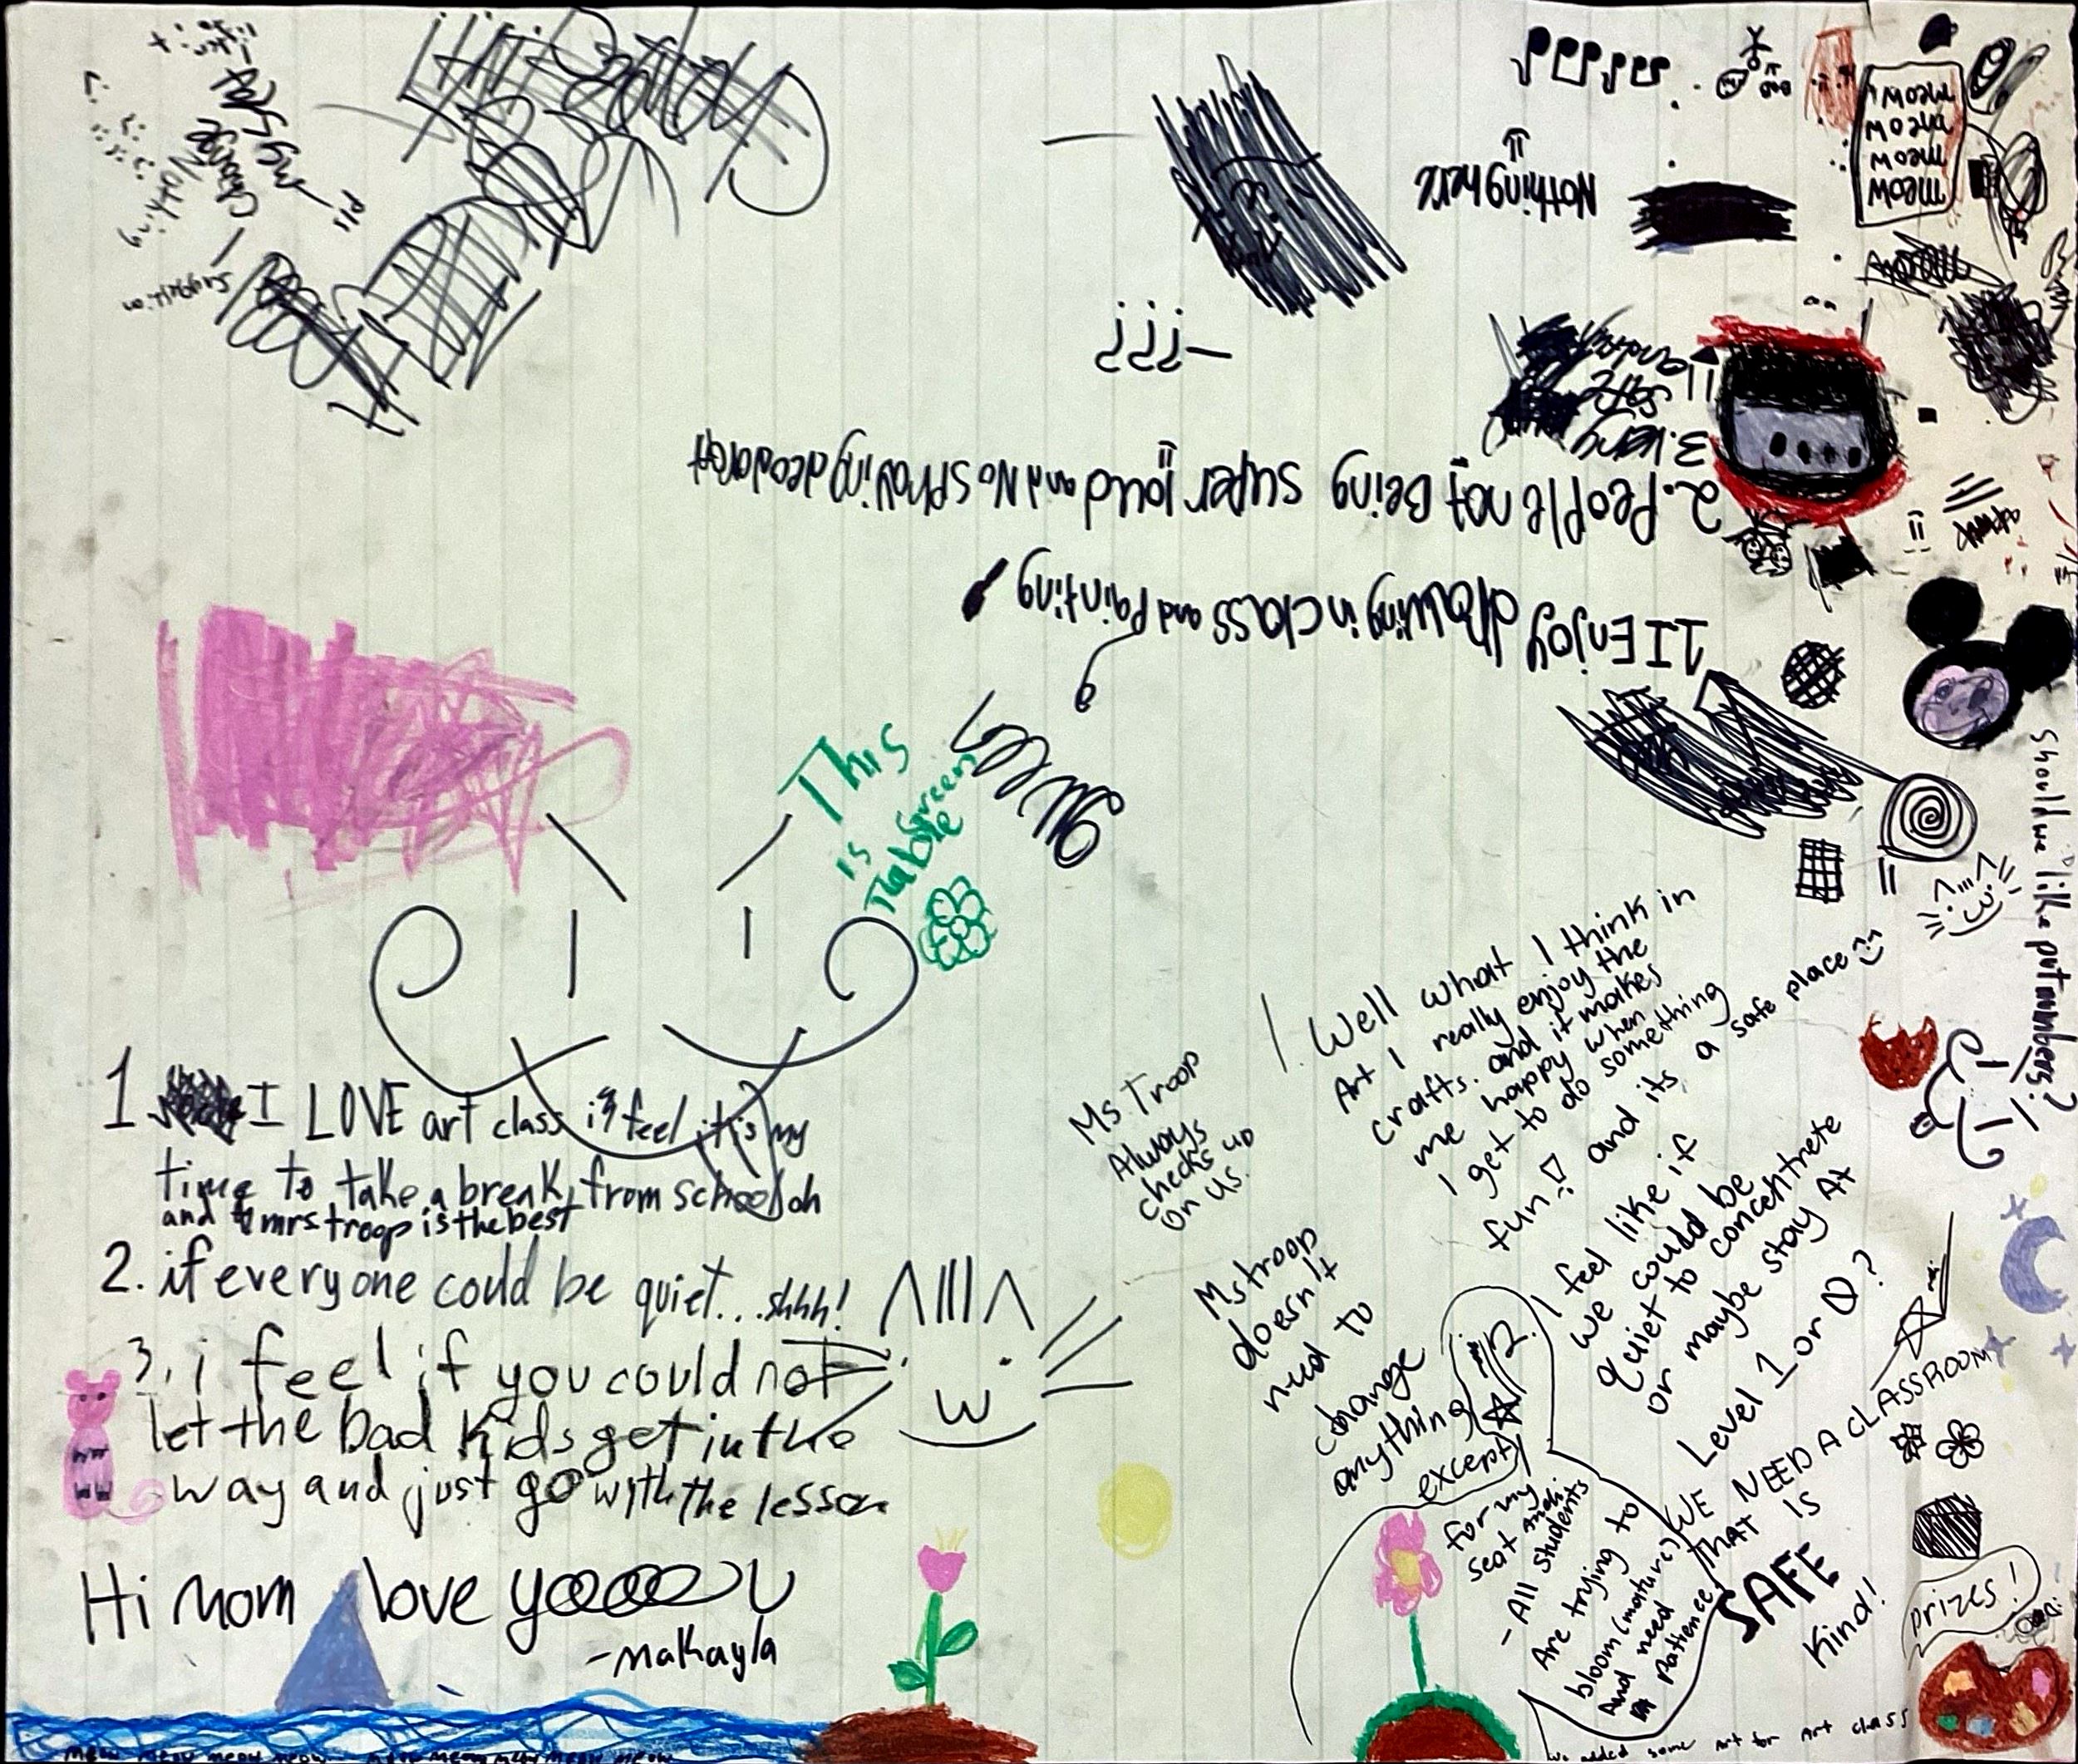 1 I LOVE art class i feel it is my
time to take a break from school oh
and mrs. troop is the best
2. if everyone could be quiet...shhh!
3. i feel if you could not
let the bad kids get in the
way and just go with the lesson
Hi Mom love yoooooU
-Makayla
meow meow meow meow meow meow meow meow meow
This
is
Green
Table
Ms. Troop
Always
checks up
on us.
Ms troop
doesn't
need to
change
anything
except
for my
seat
1. Well what I think in
Art I really enjoy the
crafts. and it makes
me happy when
I get to do something
fun! and its a safe place
2.
I feel like if
we could be
quiet to concentrete
or maybe stay At
Level 1 or 0?
- All students
Are trying to
bloom (mature)
And need
patience.
WE NEED A CLASSROOM
THAT IS
SAFE
Kind!
prizes!
We added some Art for Art class
Should we like put numbers?
1 I Enjoy drawing in class and Painting
2. People not Being super loud and No spraying deodorant
3. being
safe
Nothing here
meow
meow
meow
meow
pls
Change
Nothing
suggestion